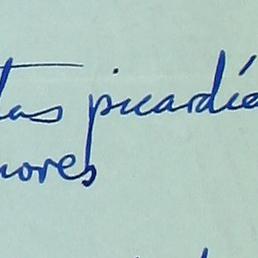 tas picardía
nores